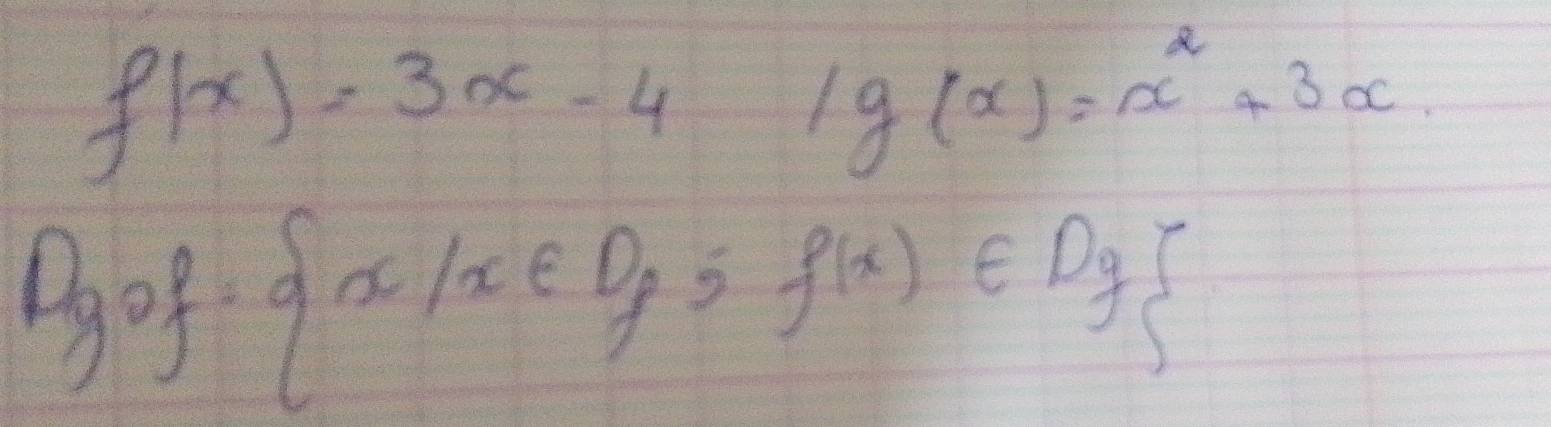 f(x) = 3x - 4 / g(x) = x² + 3x.
Dgof = { x / x ∈ Df ; f(x) ∈ Dg }